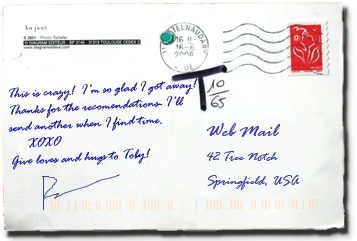 S 3601 - Photo Tatiefer
© DIAGRAM EDITEUR - BP 2146 - 31019 TOULOUSE CEDEX 2
www.diagramediteur.com
TELNAUDARY
16 H
16-6
2006
AUDE
T 10
65
This is crazy! I'm so glad I got away!
Thanks for the recomendations- I'll
send another when I find time.
XOXO
Give loves and hugs to Toby!
Web Mail
42 Tree Notch
Springfield, USA